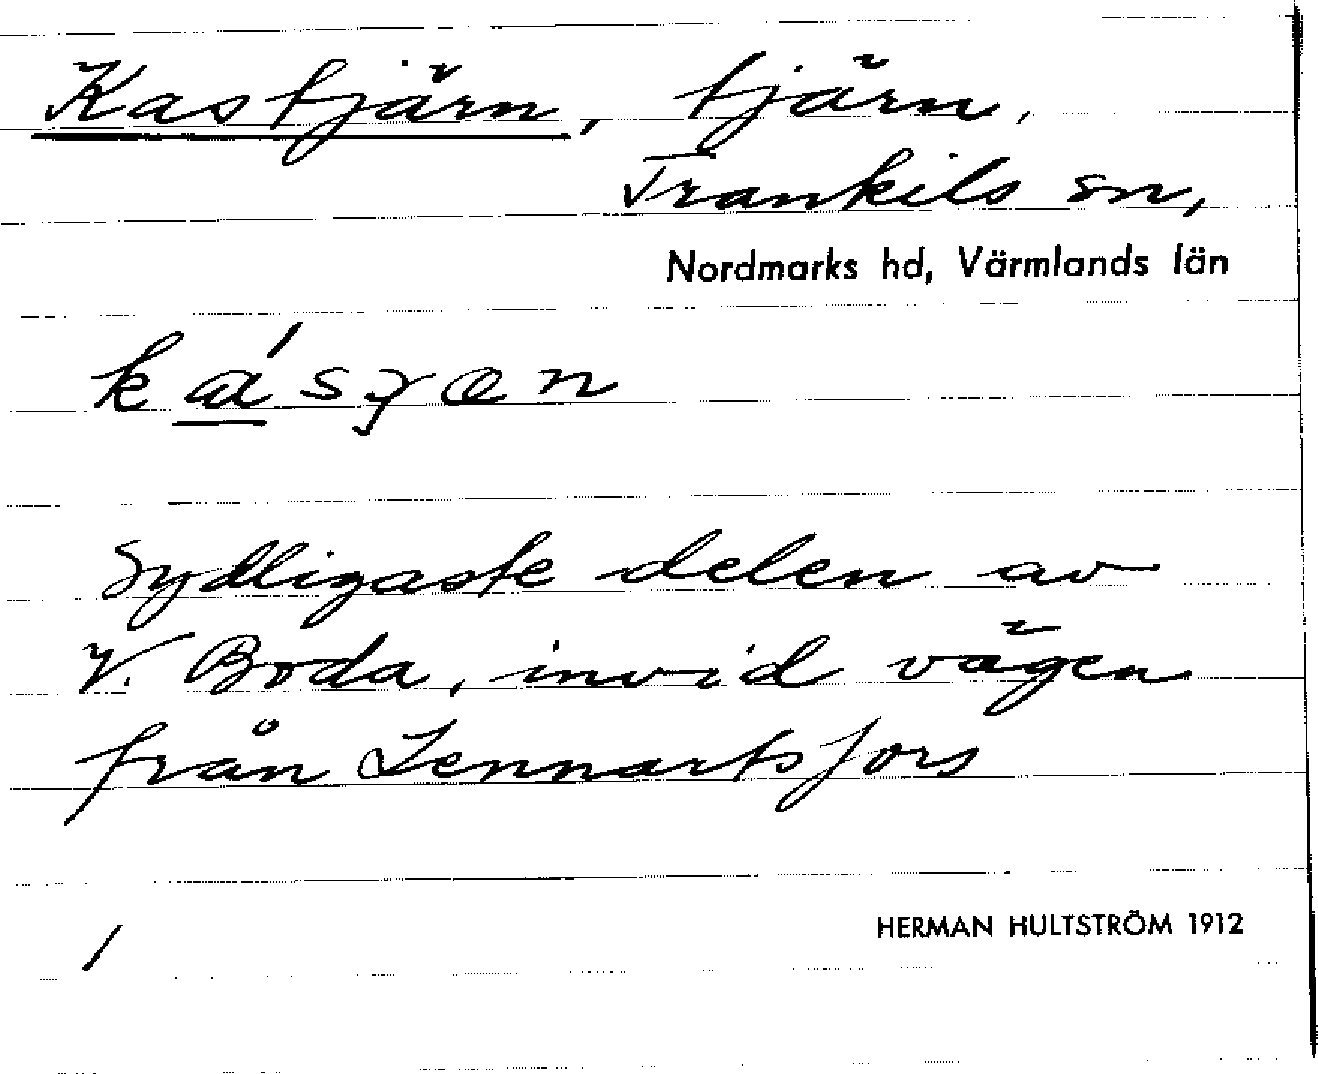 Kastjärn, tjärn,
Trankils sn,
Nordmarks hd, Värmlands län
Sydligaste delen av
V. Boda, invid vägen
från Lennartsfors
HERMAN HULTSTRÖM 1912
/